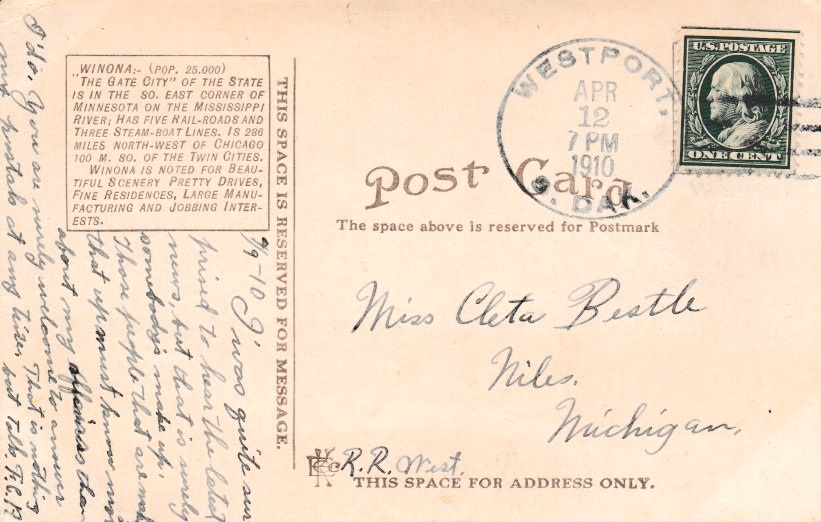 „WINONA:- (POP. 25.000)
"THE GATE CITY" OF THE STATE
IS IN THE SO. EAST CORNER OF
MINNESOTA ON THE MISSISSIPPI
RIVER; HAS FIVE RAIL-ROADS AND
THREE STEAM-BOAT LINES. IS 286
MILES NORTH-WEST OF CHICAGO
100 M. SO. OF THE TWIN CITIES.
WINONA IS NOTED FOR BEAU-
TIFUL SCENERY PRETTY DRIVES,
FINE RESIDENCES, LARGE MANU-
FACTURING AND JOBBING INTER-
ESTS.
THIS SPACE IS RESERVED FOR MESSAGE.
4/9-10 I was quite sur
prised to hear the latest
news, but that is surely
somebody's make up.
Those people that are
that up must know more
about my affairs than
I do. You are surely welcome to answer
my postals at any time. That is nothing
but talk.
WESTPORT,
APR
12
7 PM
1910
S. DAK.
U.S. POSTAGE
ONE CENT
Post Card
The space above is reserved for Postmark
Miss Cleta Bestle
Niles.
Michigan,
R.R. West.
THIS SPACE FOR ADDRESS ONLY.